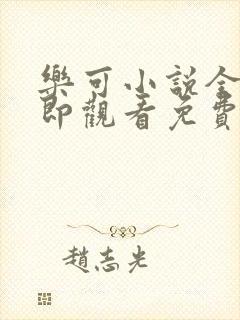 樂可小說全
即觀看免費
趙志光